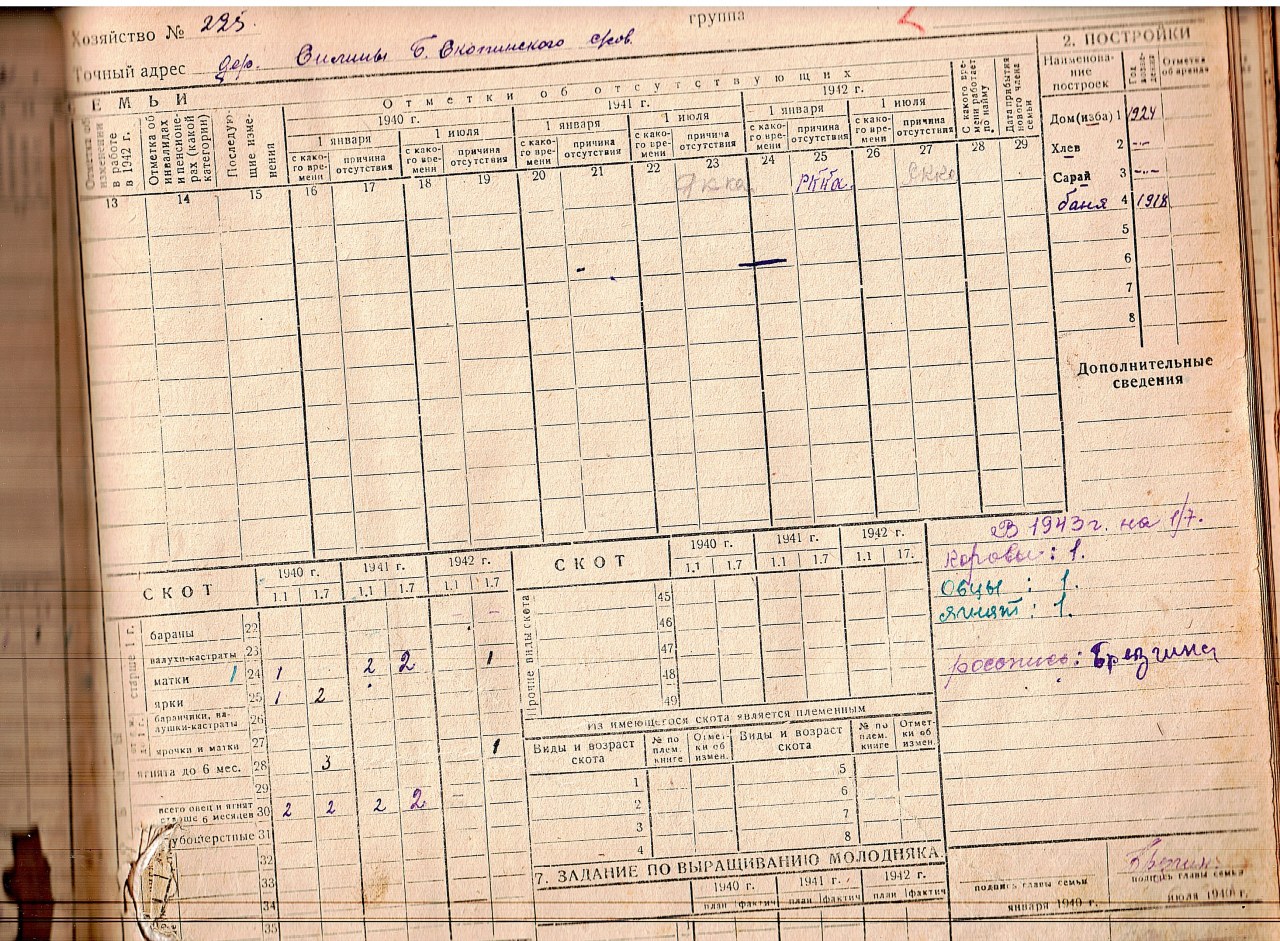 Хозяйство № 225.
группа
Точный адрес дер. Силины Б. Скопинского с/сов.
ЕМЬИ
Отметки об отсутствующих
1940 г.
1941 г.
1942 г.
1 января
1 июля
1 января
1 июля
1 января
1 июля
Отметка об изменении в работе в 1942 г.
Отметка об инвалидах и пенсионерах (какой категории)
Последующие изменения
с какого времени
причина отсутствия
с какого времени
причина отсутствия
с какого времени
причина отсутствия
с какого времени
причина отсутствия
с какого времени
причина отсутствия
с какого времени
причина отсутствия
С какого времени работает по найму
Дата прибытия нового члена семьи
13 14 15 16 17 18 19 20 21 22 23 24 25 26 27 28 29
РККа
2. ПОСТРОЙКИ
Наименование построек
Год возведения
Отметка об аренде
Дом (изба) 1 1924
Хлев 2 -"-
Сарай 3 -"-
баня 4 1918
5
6
7
8
Дополнительные сведения
В 1943 г. на 1/7.
Коровы: 1.
Овцы: 1.
Ягнят: 1.
роспись:
СКОТ
1940 г. 1941 г. 1942 г.
1.1 1.7 1.1 1.7 1.1 1.7
старше 1 г.
бараны 22 -
валухи-кастраты 23
матки 1 24 1 2 2 1
ярки 25 1 2
баранчики, валушки-кастраты 26
ярочки и матки 27 1
ягнята до 6 мес. 28 3
29
всего овец и ягнят старше 6 месяцев 30 2 2 2 2 -
убошерстные 31
32
33
34
35
СКОТ
1940 г. 1941 г. 1942 г.
1.1 1.7 1.1 1.7 1.1 17.
Прочие виды скота
45
46
47
48
49
Из имеющегося скота является племенным
Виды и возраст скота
№ по плем. книге
Отметки об измен.
Виды и возраст скота
№ по плем. книге
Отметки об измен.
1 5
2 6
3 7
4 8
7. ЗАДАНИЕ ПО ВЫРАЩИВАНИЮ МОЛОДНЯКА.
1940 г. 1941 г. 1942 г.
план фактич план фактич план фактич
1
подпись главы семьи
января 1940 г.
подпись главы семьи
июля 1940 г.